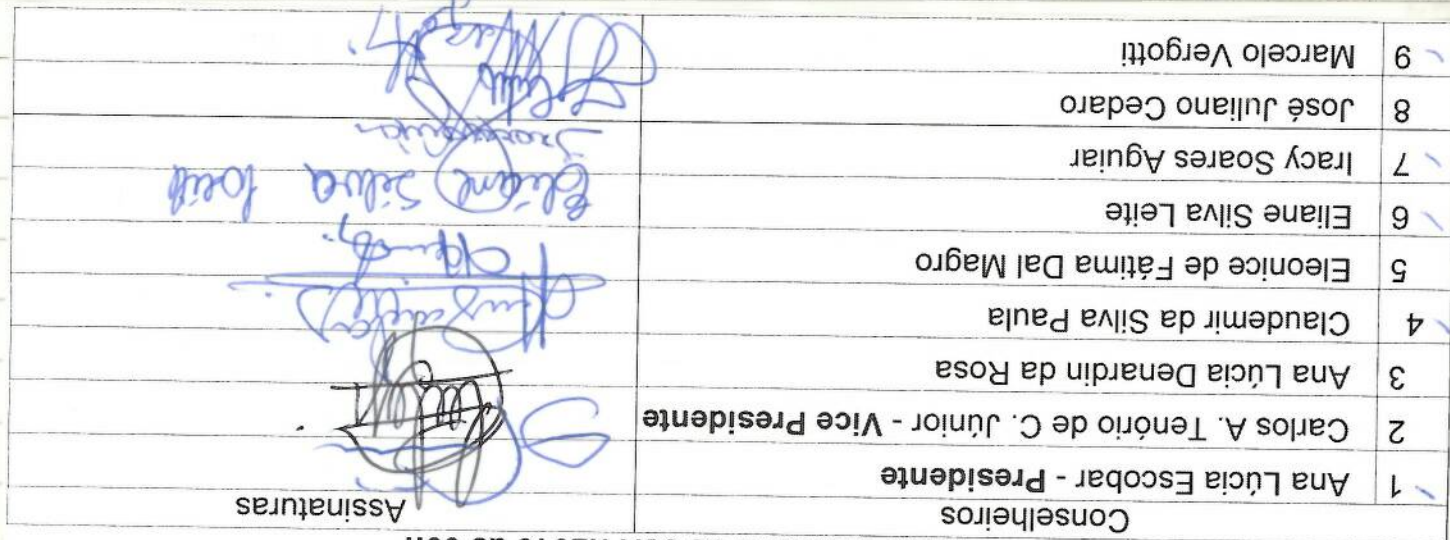 Conselheiros Assinaturas
1 Ana Lúcia Escobar - Presidente
2 Carlos A. Tenório de C. Júnior - Vice Presidente
3 Ana Lúcia Denardin da Rosa
4 Claudemir da Silva Paula
5 Eleonice de Fátima Dal Magro
6 Eliane Silva Leite Eliane Silva Leite
7 Iracy Soares Aguiar
8 José Juliano Cedaro
9 Marcelo Vergotti